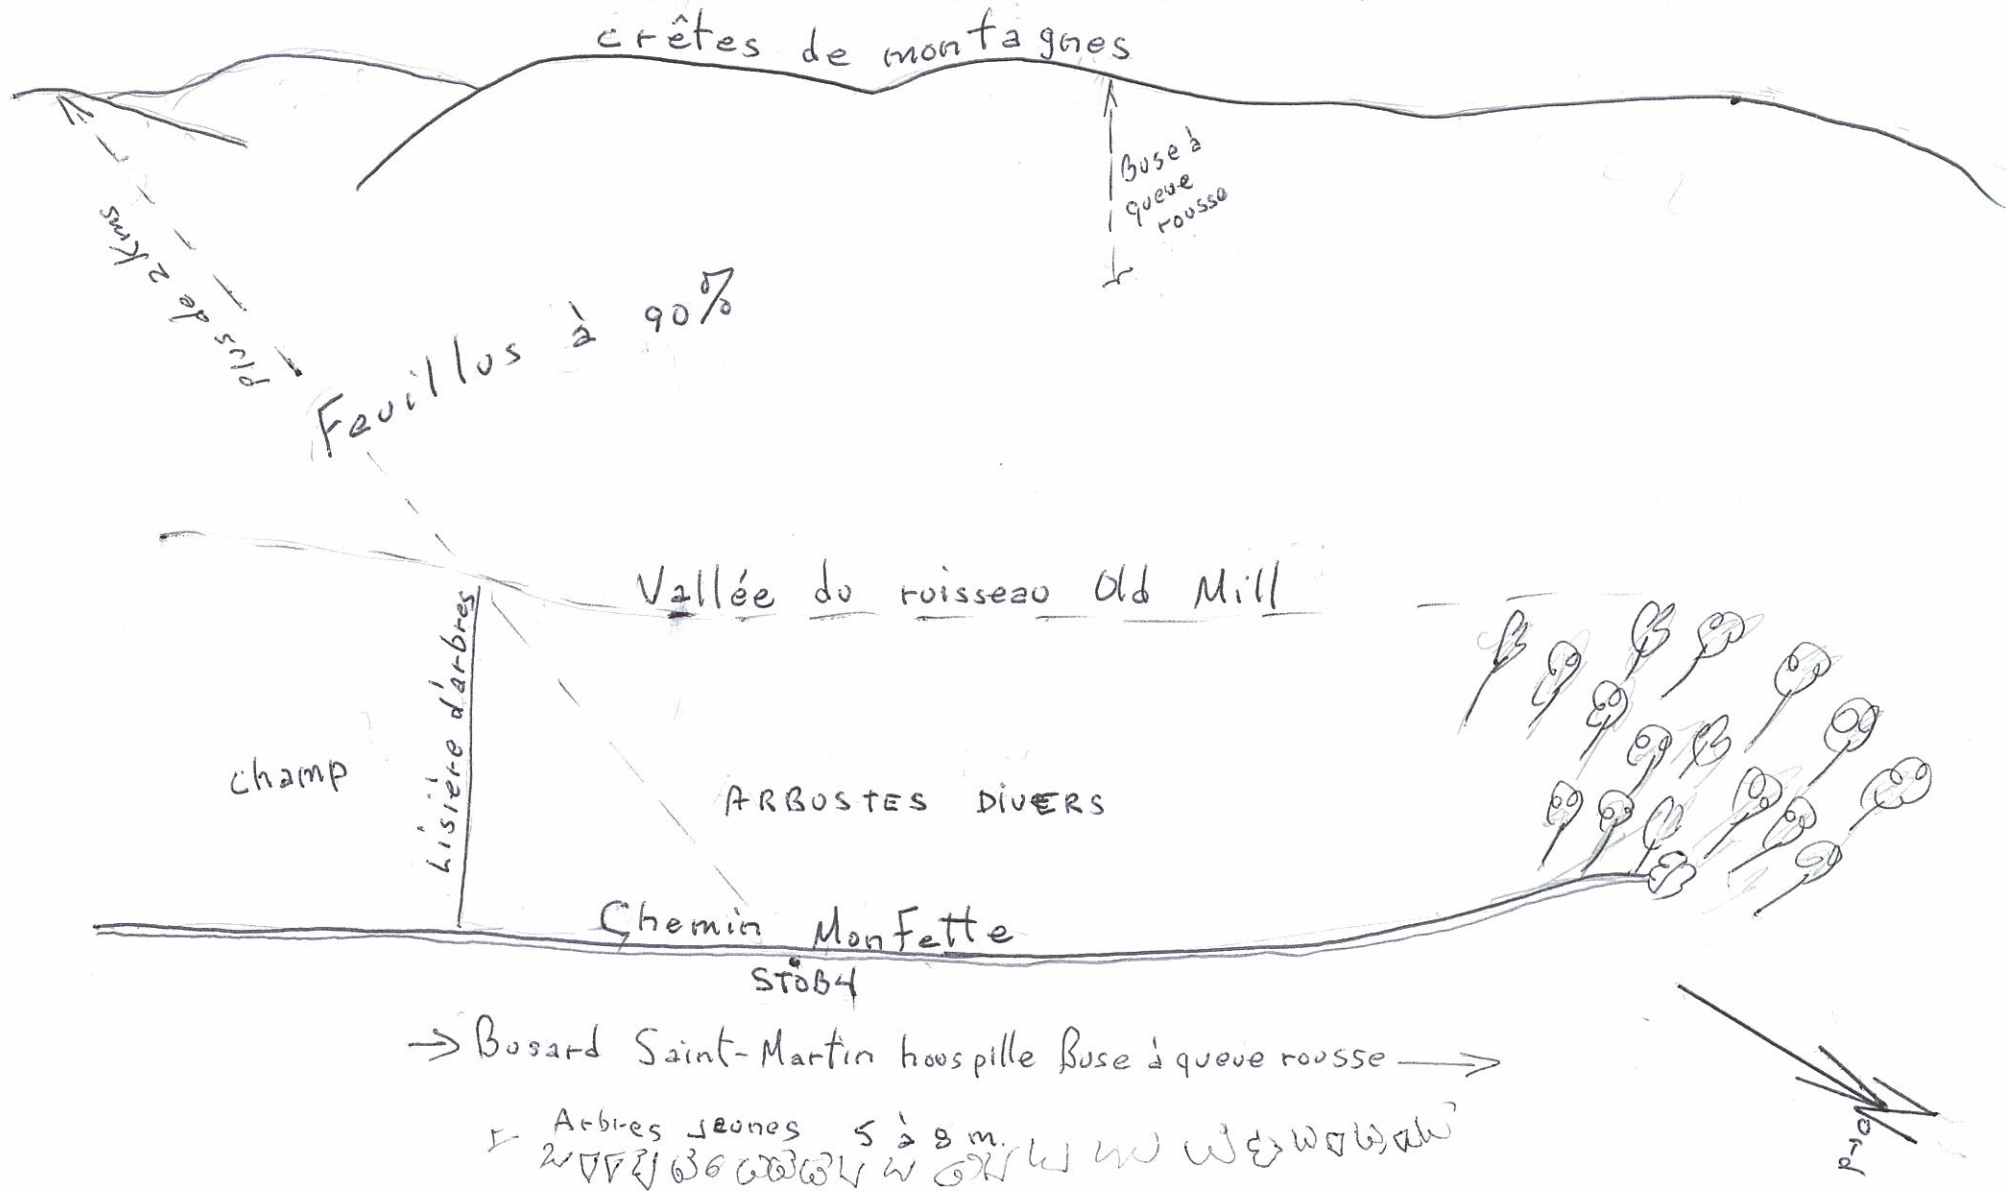 crêtes de montagnes
Buse à
queue
rousse
Plus de 2 Kms
Feuillus à 90%
Vallée du ruisseau Old Mill
Lisière d'arbres
champ
ARBUSTES DIVERS
Chemin MonFette
STOB4
→ Busard Saint-Martin houspille Buse à queue rousse →
Arbres jeunes 5 à 8 m.